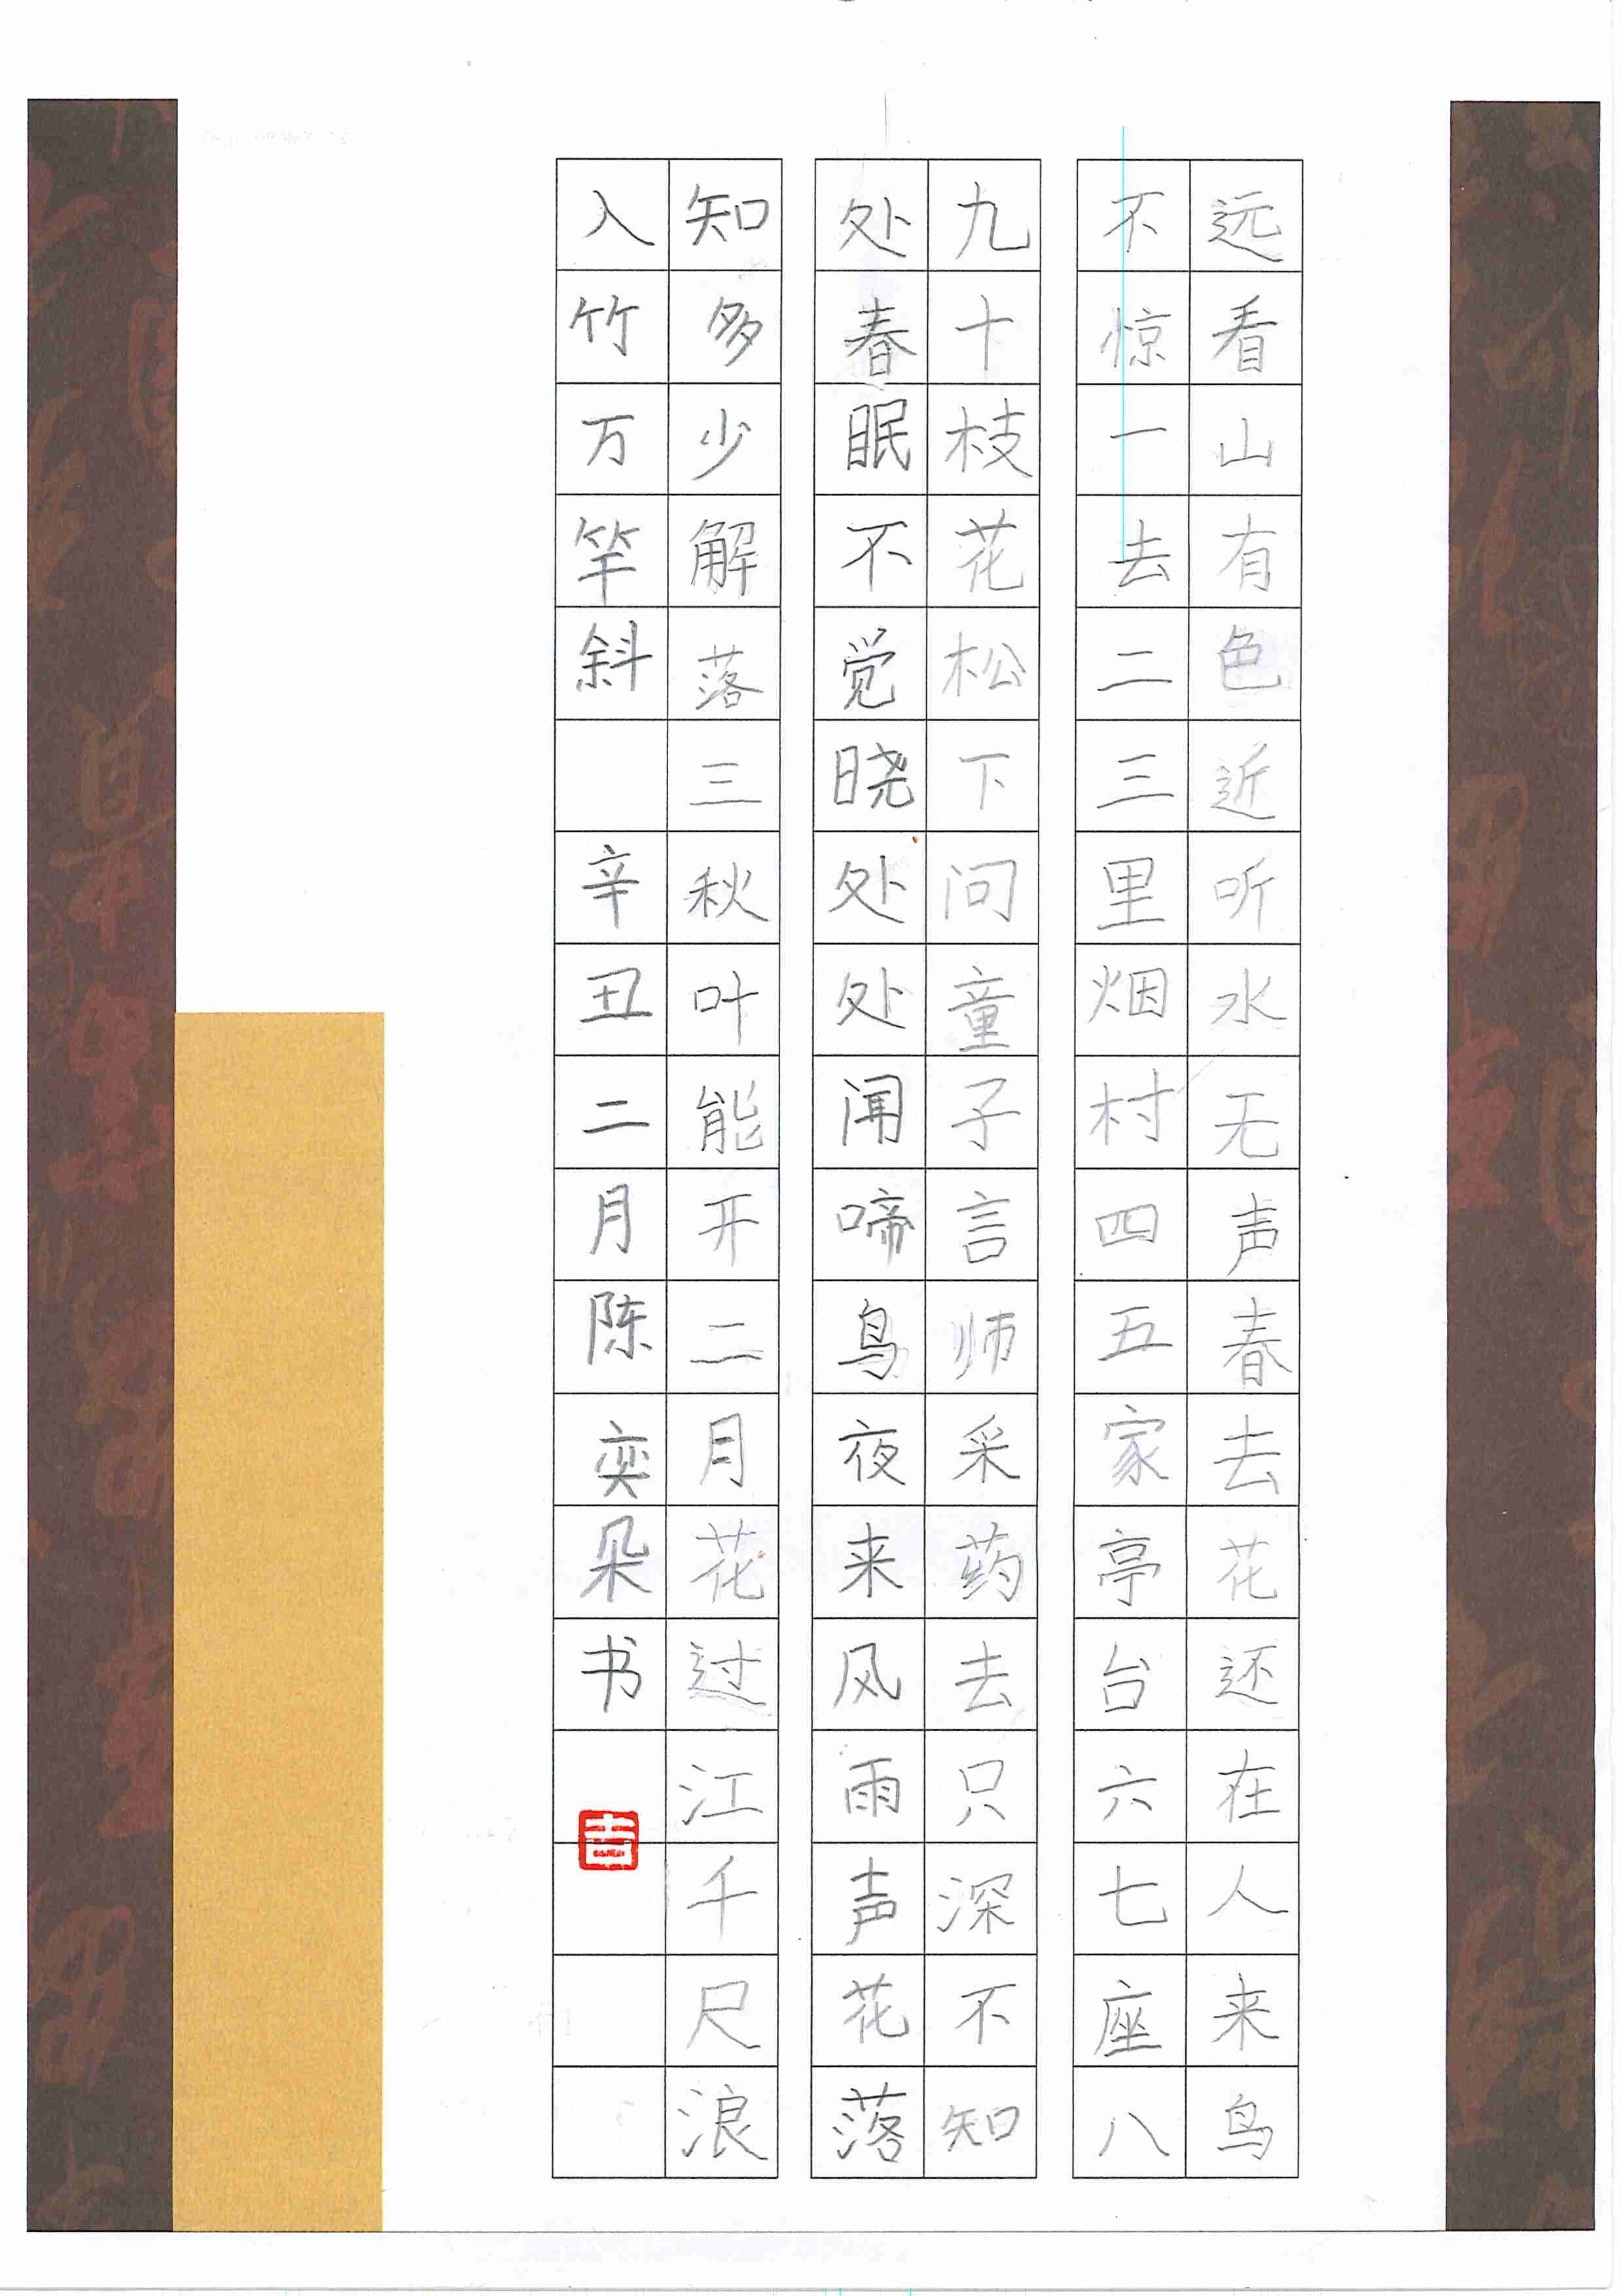 远看山有色近听水无声春去花还在人来鸟
不惊一去二三里烟村四五家亭台六七座八
九十枝花松下问童子言师采药去只深不知
处春眠不觉晓处处闻啼鸟夜来风雨声花落
知多少解落三秋叶能开二月花过江千尺浪
入竹万竿斜 辛丑二月陈奕朵书
吉